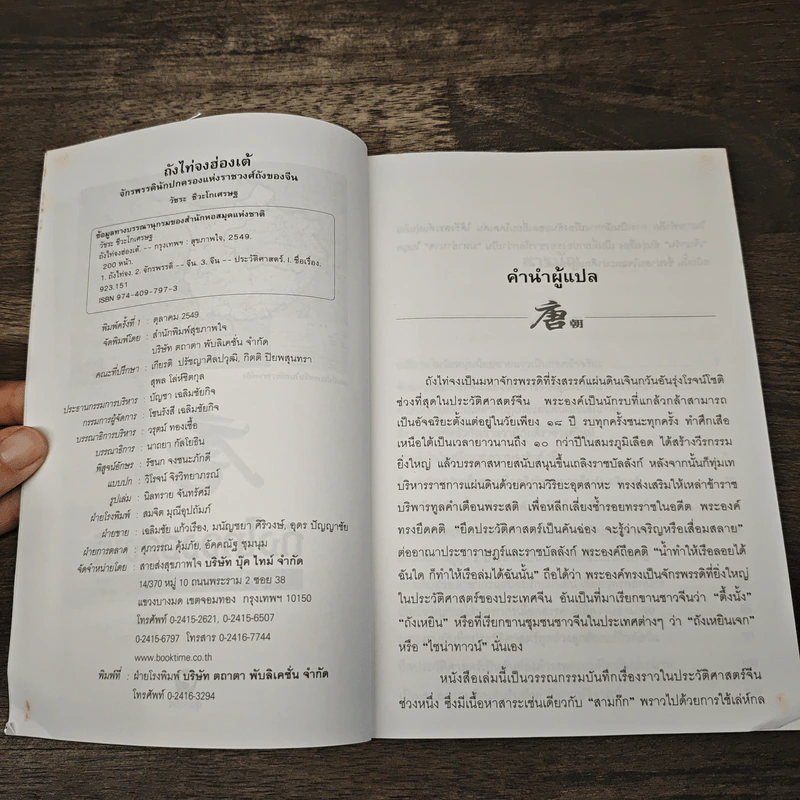 ถังไท่จงฮ่องเต้
จักรพรรดินักปกครองแห่งราชวงศ์ถังของจีน
วัชระ ชีวะโกเศรษฐ
ข้อมูลทางบรรณานุกรมของสำนักหอสมุดแห่งชาติ
วัชระ ชีวะโกเศรษฐ
ถังไท่จงฮ่องเต้. -- กรุงเทพฯ : สุขภาพใจ, 2549.
200 หน้า.
1. ถังไท่จง. 2. จักรพรรดิ -- จีน. 3. จีน -- ประวัติศาสตร์. I. ชื่อเรื่อง.
923.151
ISBN 974-409-797-3
พิมพ์ครั้งที่ 1 : ตุลาคม 2549
จัดพิมพ์โดย : สำนักพิมพ์สุขภาพใจ
บริษัท ตถาตา พับลิเคชั่น จำกัด
คณะที่ปรึกษา : เกียรติ ปรัชญาศิลปวุฒิ, กิตติ ปิยพสุนทรา
สุพล โล่ห์ชิตกุล
ประธานกรรมการบริหาร : บัญชา เฉลิมชัยกิจ
กรรมการผู้จัดการ : โชนรังสี เฉลิมชัยกิจ
บรรณาธิการบริหาร : วรุตม์ ทองเชื้อ
บรรณาธิการ : นาถยา กัลโยธิน
พิสูจน์อักษร : รัชนก จงชนะภักดี
แบบปก : วิโรจน์ จิรวิทยาภรณ์
รูปเล่ม : นิลทราย จันทรัศมี
ฝ่ายโรงพิมพ์ : สมจิต มุณีอุปถัมภ์
ฝ่ายขาย : เฉลิมชัย แก้วเรือง, มนัญชยา ศิริวงษ์, อุดร ปัญญาชัย
ฝ่ายการตลาด : ศุภวรรณ คุ้มภัย, อัคคณัฐ ชุมนุม
จัดจำหน่ายโดย : สายส่งสุขภาพใจ บริษัท บุ๊ค ไทม์ จำกัด
14/370 หมู่ 10 ถนนพระราม 2 ซอย 38
แขวงบางมด เขตจอมทอง กรุงเทพฯ 10150
โทรศัพท์ 0-2415-2621, 0-2415-6507
0-2415-6797 โทรสาร 0-2416-7744
www.booktime.co.th
พิมพ์ที่ : ฝ่ายโรงพิมพ์ บริษัท ตถาตา พับลิเคชั่น จำกัด
โทรศัพท์ 0-2416-3294
คำนำผู้แปล
唐朝
ถังไท่จงเป็นมหาจักรพรรดิที่รังสรรค์แผ่นดินเจินกวันอันรุ่งโรจน์โชติ
ช่วงที่สุดในประวัติศาสตร์จีน พระองค์เป็นนักรบที่แกล้วกล้าสามารถ
เป็นอัจฉริยะตั้งแต่อยู่ในวัยเพียง ๑๘ ปี รบทุกครั้งชนะทุกครั้ง ทำศึกเสือ
เหนือใต้เป็นเวลายาวนานถึง ๑๐ กว่าปีในสมรภูมิเลือด ได้สร้างวีรกรรม
ยิ่งใหญ่ แล้วบรรดาสหายสนับสนุนขึ้นเถลิงราชบัลลังก์ หลังจากนั้นก็ทุ่มเท
บริหารราชการแผ่นดินด้วยความวิริยะอุตสาหะ ทรงส่งเสริมให้เหล่าข้าราช
บริพารทูลคำเตือนพระสติ เพื่อหลีกเลี่ยงซ้ำรอยทรราชในอดีต พระองค์
ทรงยึดคติ “ยึดประวัติศาสตร์เป็นคันฉ่อง จะรู้ว่าเจริญหรือเสื่อมสลาย”
ต่ออาณาประชาราษฎร์และราชบัลลังก์ พระองค์ถือคติ “น้ำทำให้เรือลอยได้
ฉันใด ก็ทำให้เรือล่มได้ฉันนั้น” ถือได้ว่า พระองค์ทรงเป็นจักรพรรดิที่ยิ่งใหญ่
ในประวัติศาสตร์ของประเทศจีน อันเป็นที่มาเรียกขานชาวจีนว่า “ตึ้งนั้ง”
“ถังเหยิน” หรือที่เรียกขานชุมชนชาวจีนในประเทศต่างๆ ว่า “ถังเหยินเจก”
หรือ “ไชน่าทาวน์” นั่นเอง
หนังสือเล่มนี้เป็นวรรณกรรมบันทึกเรื่องราวในประวัติศาสตร์จีน
ช่วงหนึ่ง ซึ่งมีเนื้อหาสาระเช่นเดียวกับ “สามก๊ก” พราวไปด้วยการใช้เล่ห์กล